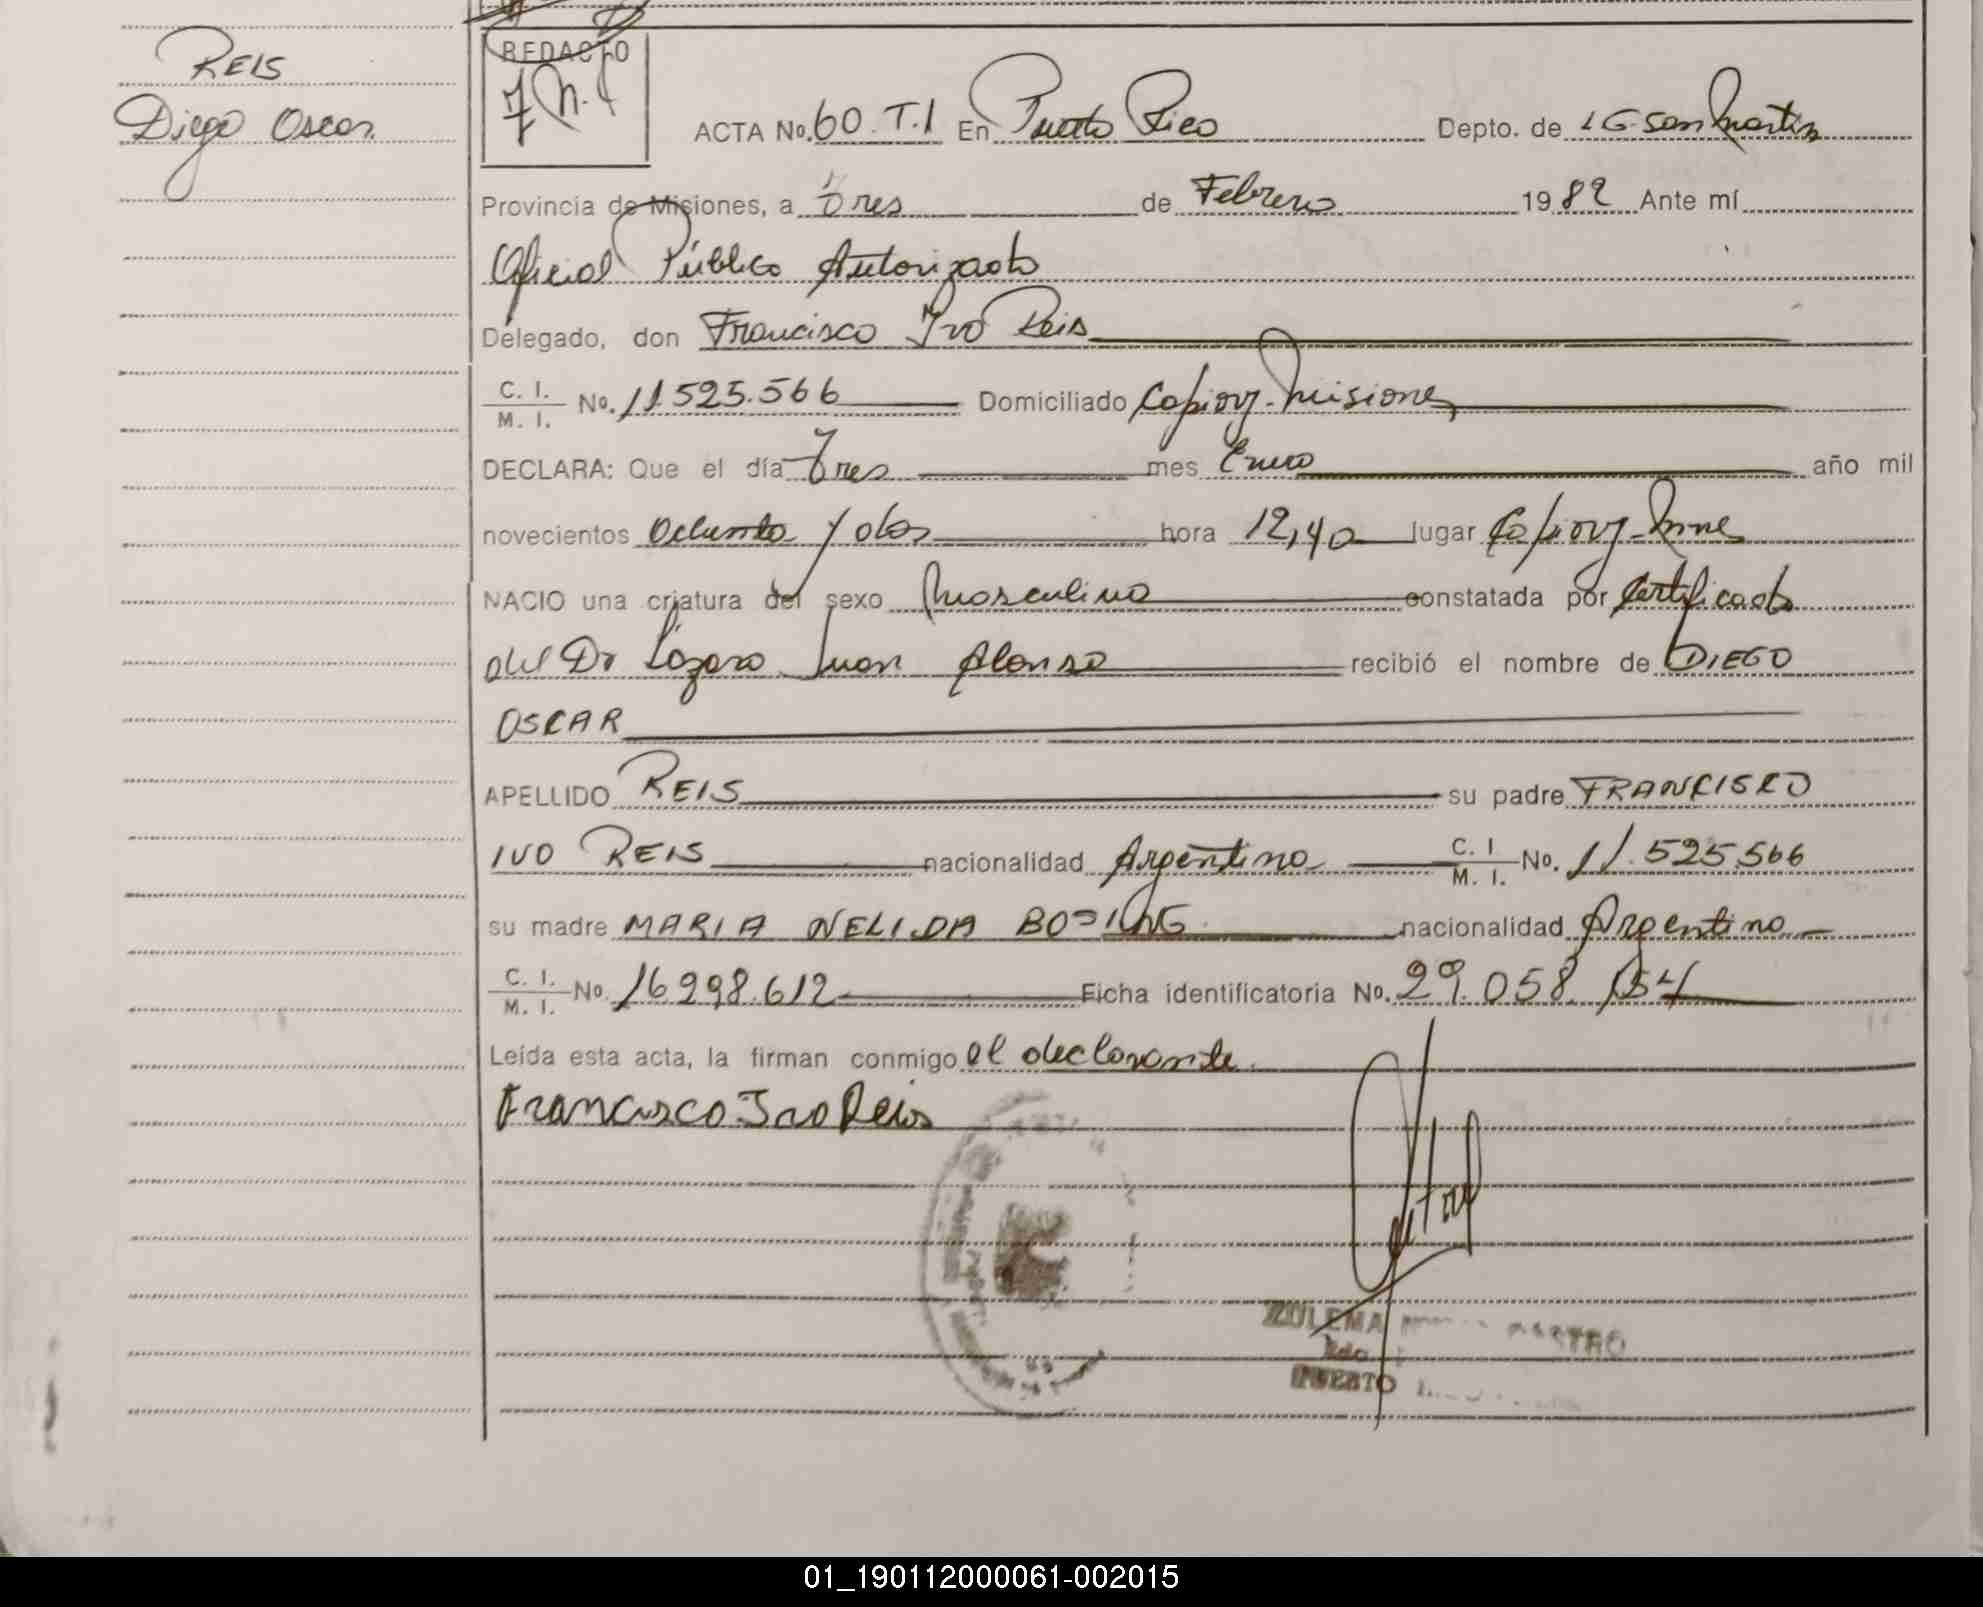 REIS
Diego Oscar
REDACTO
ACTA No. 60. T.1 En Puerto Rico Depto. de L G San Martin
Provincia de Misiones, a tres de Febrero 1982 Ante mí
Oficial Público Autorizado
Delegado, don Francisco Ivo Reis
C. I. M. I. No. 11.525.566 Domiciliado Capiovy-Misiones
DECLARA: Que el día Tres mes Enero año mil
novecientos Ochenta y dos hora 12,40 lugar Capiovy-Mnes
NACIO una criatura del sexo Masculino constatada por Certificado
del Dr Lázaro Juan Alonso recibió el nombre de DIEGO
OSCAR
APELLIDO REIS su padre FRANCISCO
IVO REIS nacionalidad Argentino C. I. M. I. No. 11.525.566
su madre MARIA NELIDA BOSING nacionalidad Argentina
C. I. M. I. No. 16298.612 Ficha identificatoria No. 29.058.154
Leída esta acta, la firman conmigo el declarante.
Francisco Ivo Reis
ZULEMA
PUERTO
01_190112000061-002015